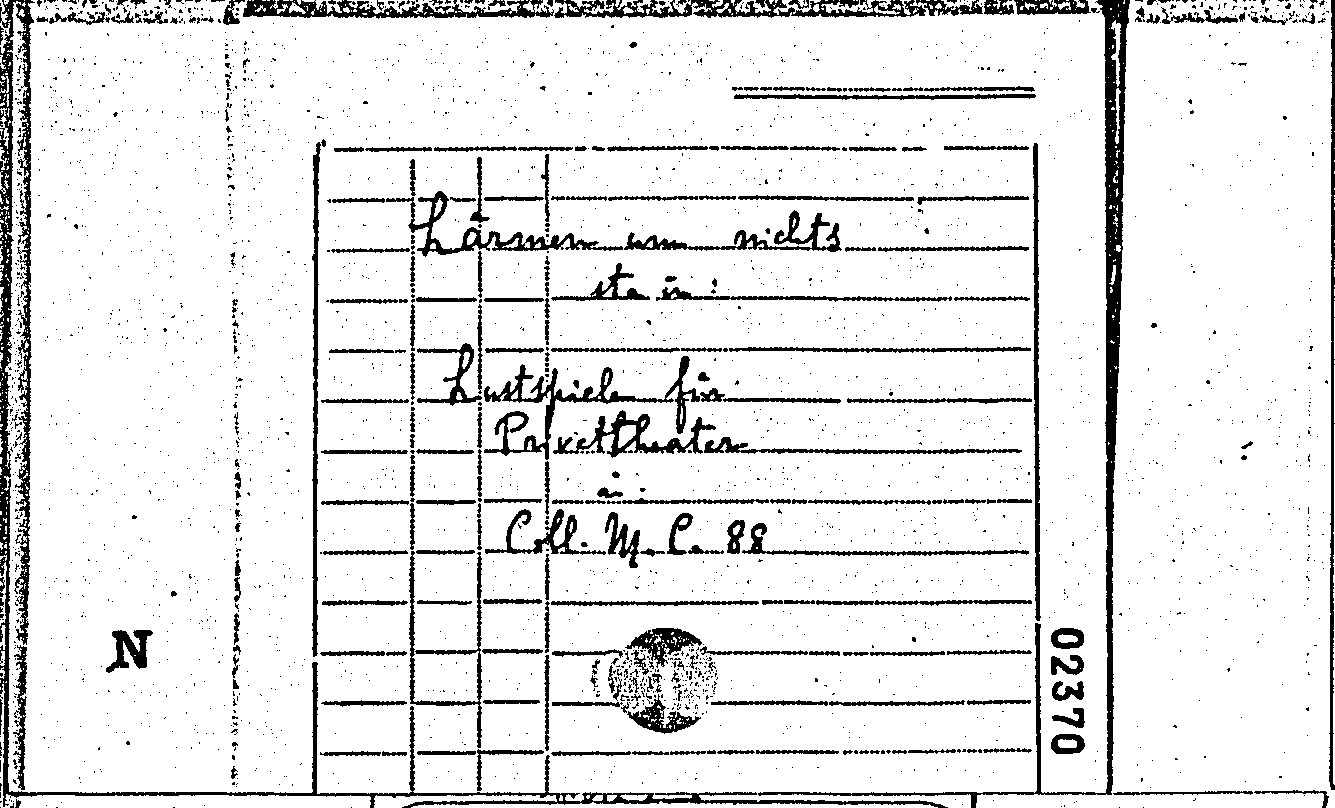 Lärmen um nichts
sta in:
Lustspiele für
Privattheater
in:
Coll. M. C. 88
N
02370